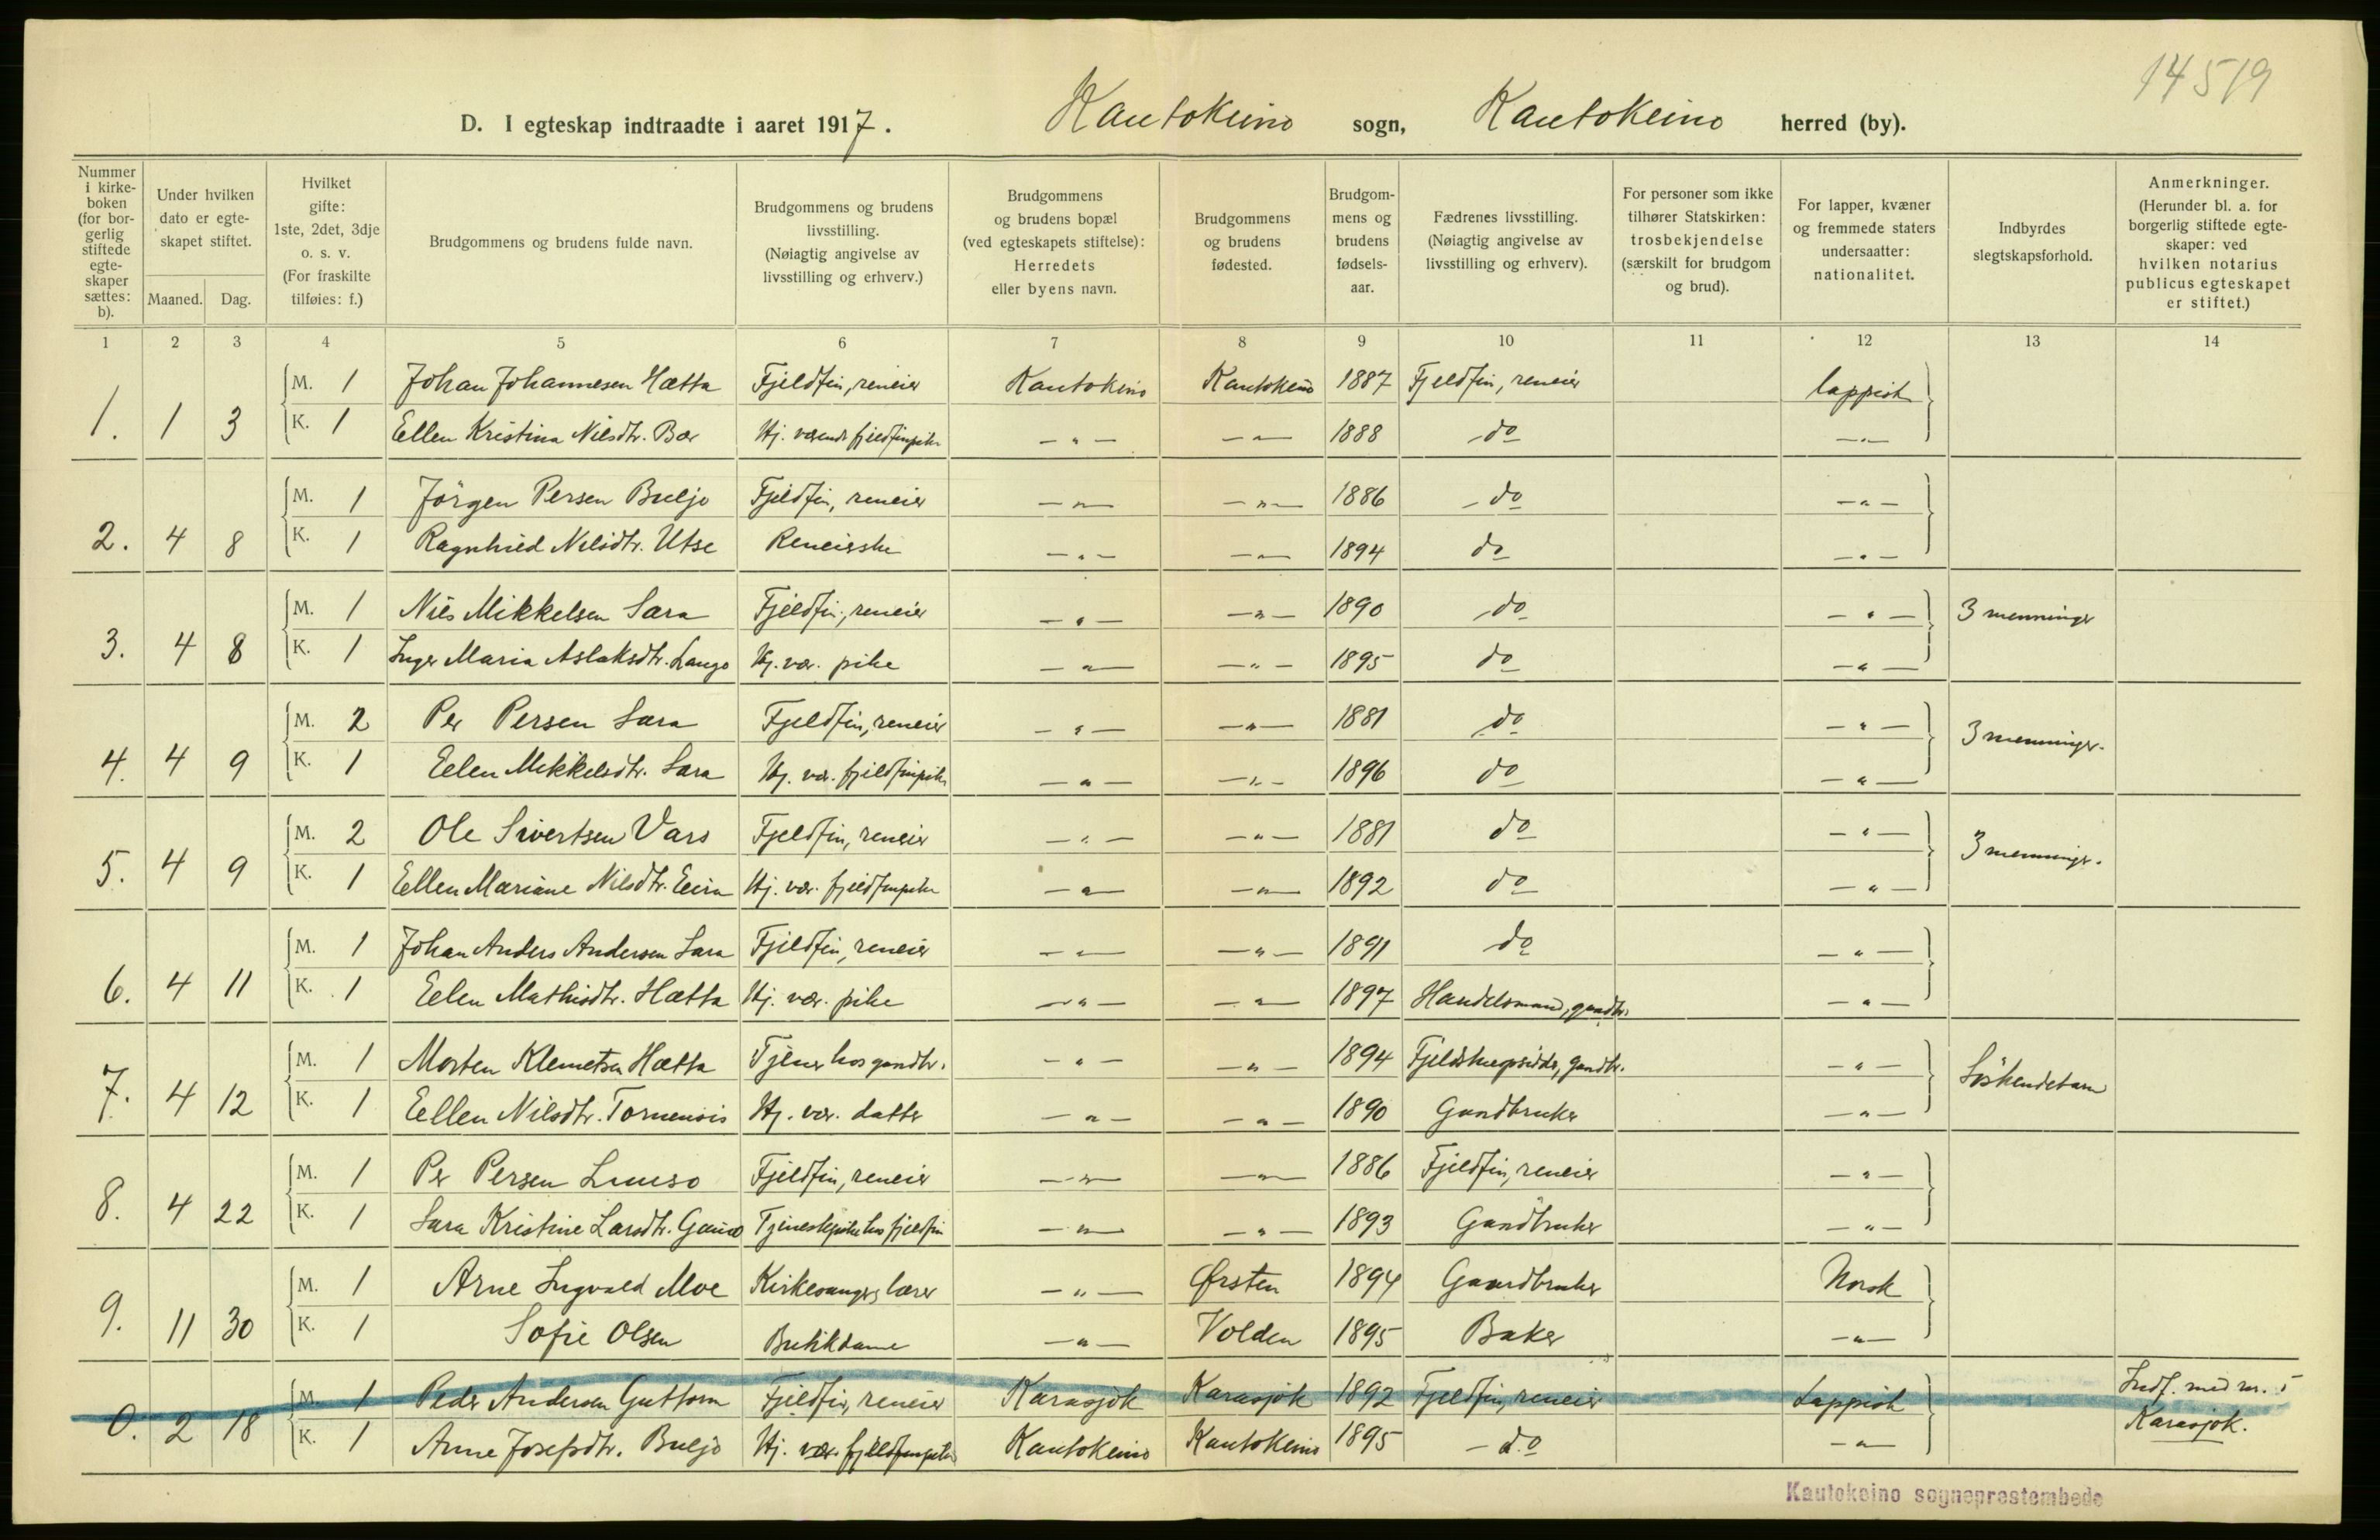 14519
D. I egteskap indtraadte i aaret 1917. Kautokeino sogn, Kautokeino herred (by).
Nummer i kirkeboken (for borgerlig stiftede egteskaper sættes: b).
Under hvilken dato er egteskapet stiftet.
Maaned. Dag.
Hvilket gifte: 1ste, 2det, 3dje o. s. v. (For fraskilte tilføies: f.)
Brudgommens og brudens fulde navn.
Brudgommens og brudens livsstilling. (Nøiagtig angivelse av livsstilling og erhverv.)
Brudgommens og brudens bopæl (ved egteskapets stiftelse): Herredets eller byens navn.
Brudgommens og brudens fødested.
Brudgommens og brudens fødselsaar.
Fædrenes livsstilling. (Nøiagtig angivelse av livsstilling og erhverv).
For personer som ikke tilhører Statskirken: trosbekjendelse (særskilt for brudgom og brud).
For lapper, kvæner og fremmede staters undersaatter: nationalitet.
Indbyrdes slegtskapsforhold.
Anmerkninger. (Herunder bl. a. for borgerlig stiftede egteskaper: ved hvilken notarius publicus egteskapet er stiftet.)
1 2 3 4 5 6 7 8 9 10 11 12 13 14
1. 1 3 M. 1 Johan Johannesen Hætta Fjeldfin, reneier Kautokeino Kautokeino 1887 Fjeldfin, reneier lappisk
K. 1 Ellen Kristina Nilsdtr. Bær Hj. værende fjeldfinpike —"— —"— 1888 do —"—
2. 4 8 M. 1 Jörgen Persen Buljo Fjeldfin, reneier —"— —"— 1886 do —"—
K. 1 Ragnhild Nilsdtr. Utse Reneierske —"— —"— 1894 do —"—
3. 4 8 M. 1 Nils Mikkelsen Sara Fjeldfin, reneier —"— —"— 1890 do —"— 3 menninger
K. 1 Inger Maria Aslaksdtr. Lango Hj. vær. pike —"— —"— 1895 do —"—
4. 4 9 M. 2 Per Persen Sara Fjeldfin, reneier —"— —"— 1881 do —"— 3 menninger.
K. 1 Ellen Mikkelsdtr. Sara Hj. vær. fjeldfinpike —"— —"— 1896 do —"—
5. 4 9 M. 2 Ole Sivertsen Vars Fjeldfin, reneier —"— —"— 1881 do —"— 3 menninger.
K. 1 Ellen Mariane Nilsdtr. Eira Hj. vær. fjeldfinpike —"— —"— 1892 do —"—
6. 4 11 M. 1 Johan Anders Andersen Sara Fjeldfin, reneier —"— —"— 1891 do —"—
K. 1 Ellen Mathisdtr. Hætta Hj. vær. pike —"— —"— 1897 Handelsmand, gaardbr. —"—
7. 4 12 M. 1 Morten Klemetsen Hætta Tjener hos gaardbr. —"— —"— 1894 Fjeldstueopsidder, gaardbr. —"— Söskendebarn
K. 1 Ellen Nilsdtr. Tornensis Hj. vær. datter —"— —"— 1890 Gaardbruker —"—
8. 4 22 M. 1 Per Persen Luuso Fjeldfin, reneier —"— —"— 1886 Fjeldfin, reneier —"—
K. 1 Sara Kristine Larsdtr. Gaino Tjenestepike hos fjeldfin —"— —"— 1893 Gaardbruker —"—
9. 11 30 M. 1 Arne Ingvald Moe Kirkesanger, lærer —"— Ørsten 1894 Gaardbruker Norsk
K. 1 Sofie Olsen Butikdame —"— Volden 1895 Baker —"—
0. 2 18 M. 1 Peder Andersen Guttorm Fjeldfin, reneier Karasjok Karasjok 1892 Fjeldfin, reneier Lappisk Indf. med nr. i Karasjok.
K. 1 Anne Josefsdtr. Buljo Hj. vær. fjeldfinpike Kautokeino Kautokeino 1895 do —"—
Kautokeino sogneprestembede